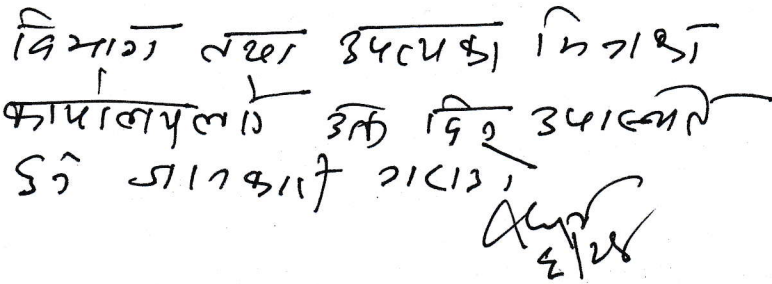 विभाग तथा उपत्यका भित्रका
कार्यालयलाई उक्त दिन उपस्थित
हुने जानकारी गराउ।
६/२४